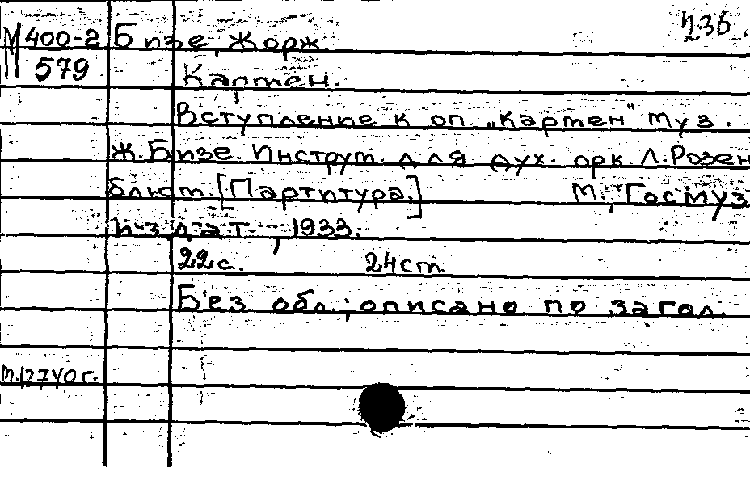 М400-2 Бизе, Жорж 235.
579 Кармен.
Вступление к оп. „Кармен" Муз.
Ж. Бизе. Инструм. для дух. орк. Л. Розен
блюм. [Партитура.] М., Госмуз
издат, 1933.
22с. 24 ст.
Без обл.; описано по загол.